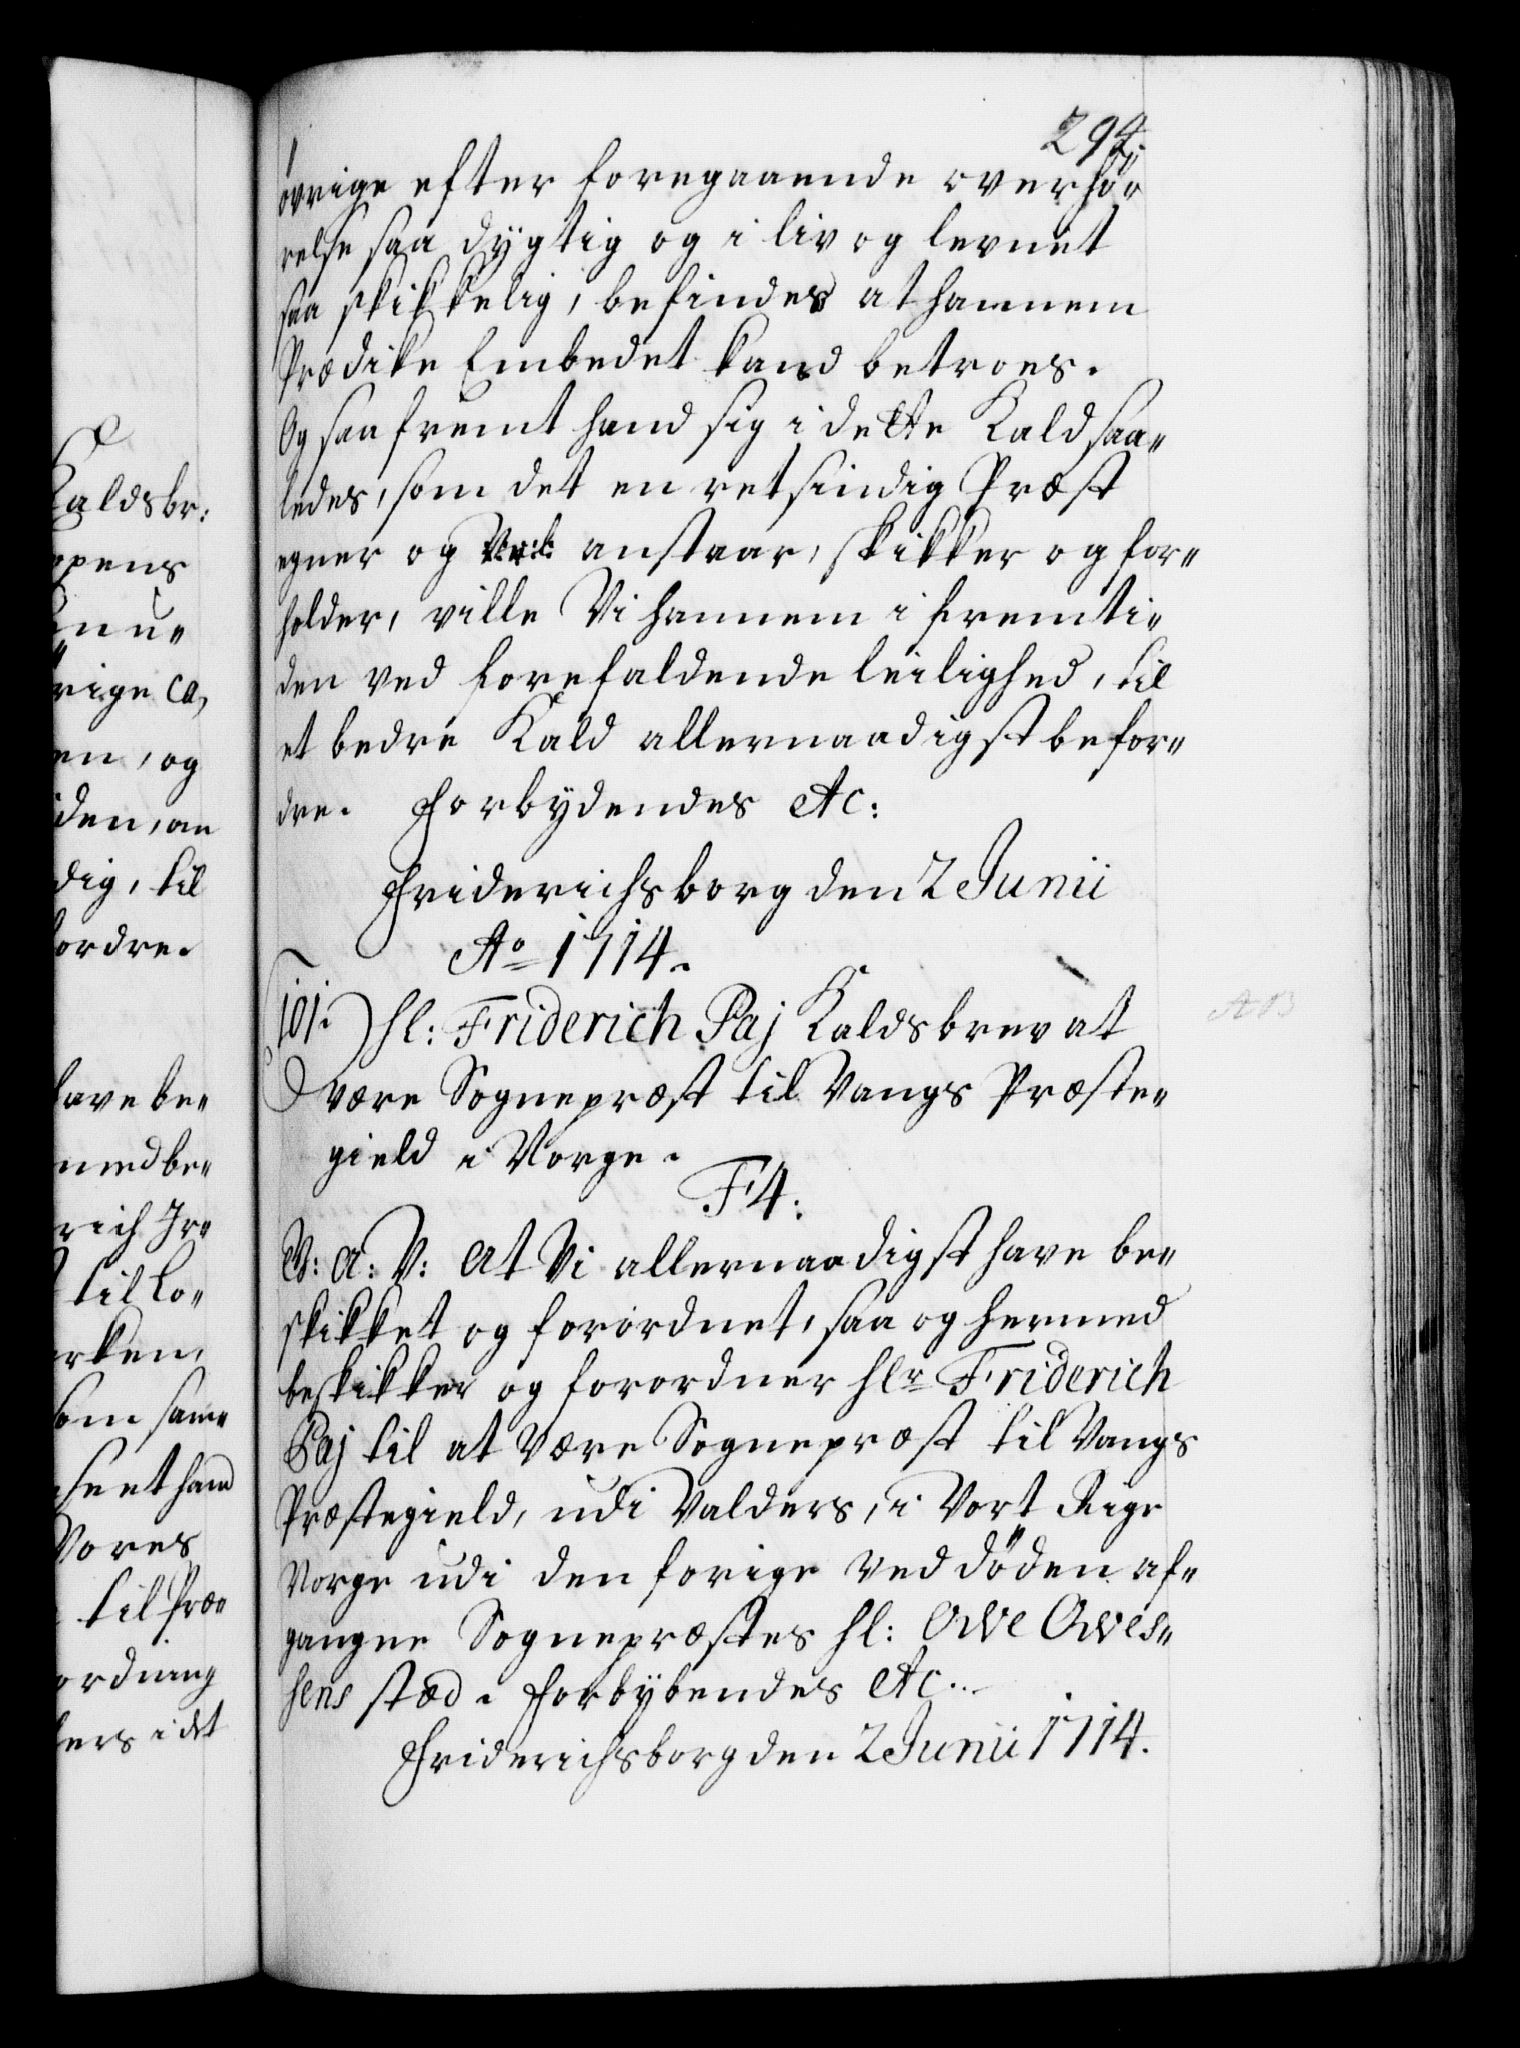 294.
övrige efter foregaaende overhö"
relse saa dygtig og i liv og levnet
saa skikkelig, befindes at hannem
Prædike Embedet kand betroes.
Og saafremt hand sig i dette Kald saa"
ledes, som det en retsindig Præst
egner og anstaar, skikker og for"
holder, ville Vi hannem i fremti"
den ved forefaldende leilighed, til
et bedre Kald allernaadigst befor"
dre. Forbydendes etc:
Friderichsborg den 2 Junii
Ao 1714.
101.) hl: Friderich Paj Kaldsbrev at
være Sognepræst til Vangs Præste"
gield i Norge.
F4:
G: A: V: At Vi allernaadigst have be"
skikket og forordnet, saa og hermed
beskikker og forordner hlr Friderich
Paj til at være Sognepræst til Vangs
Præstegield, udi Valders, i Vort Rige
Norge udi den forige ved döden af"
gangne Sognepræstes hl: Ove Oves"
hens stæd. Forbybendes etc.
Friderichsborg den 2 Junii 1714.
Kaldsbr:
opens
nu"
rige ca,
en, og
iden, an
dig, til
fordre.
have be"
med be"
rich Jr"
til Lo"
rken,
som sam"
seet hand
Vores
til Præ"
ordning
ders i dt